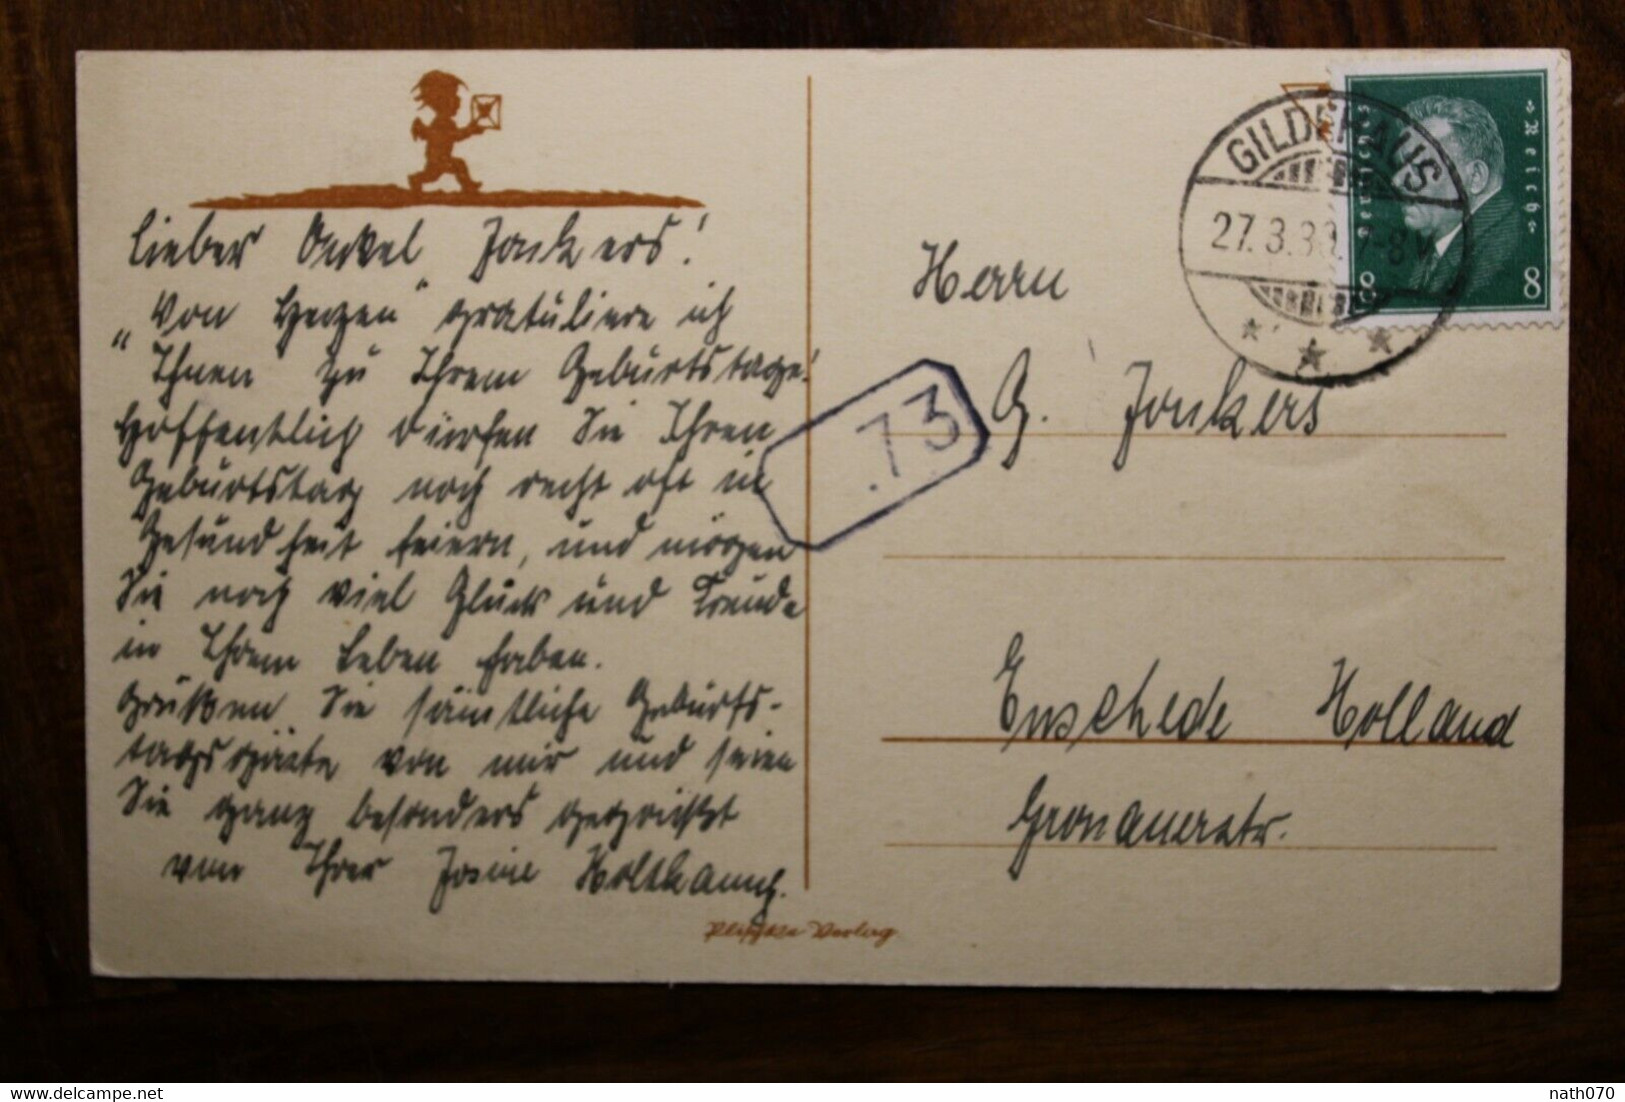 Lieber Onkel Jonkers!
„Von Herzen" gratuliere ich
„Ihnen" zu Ihrem Geburtstage!
Hoffentlich dürfen Sie Ihren
Geburtstag noch recht oft in
Gesundheit feiern, und mögen
Sie noch viel Glück und Freude
in Ihrem Leben haben.
Grüßen Sie sämtliche Geburts-
tagsgäste von mir und seien
Sie ganz besonders gegrüßt
von Ihrer Josine Holtkamp.
Verlag
GILDEHAUS
27.3.30. 7-8 V
Deutsches Reich
8 8
.73
Herrn
G. Jonkers
Enschede Holland
Gronauerstr.
nath070